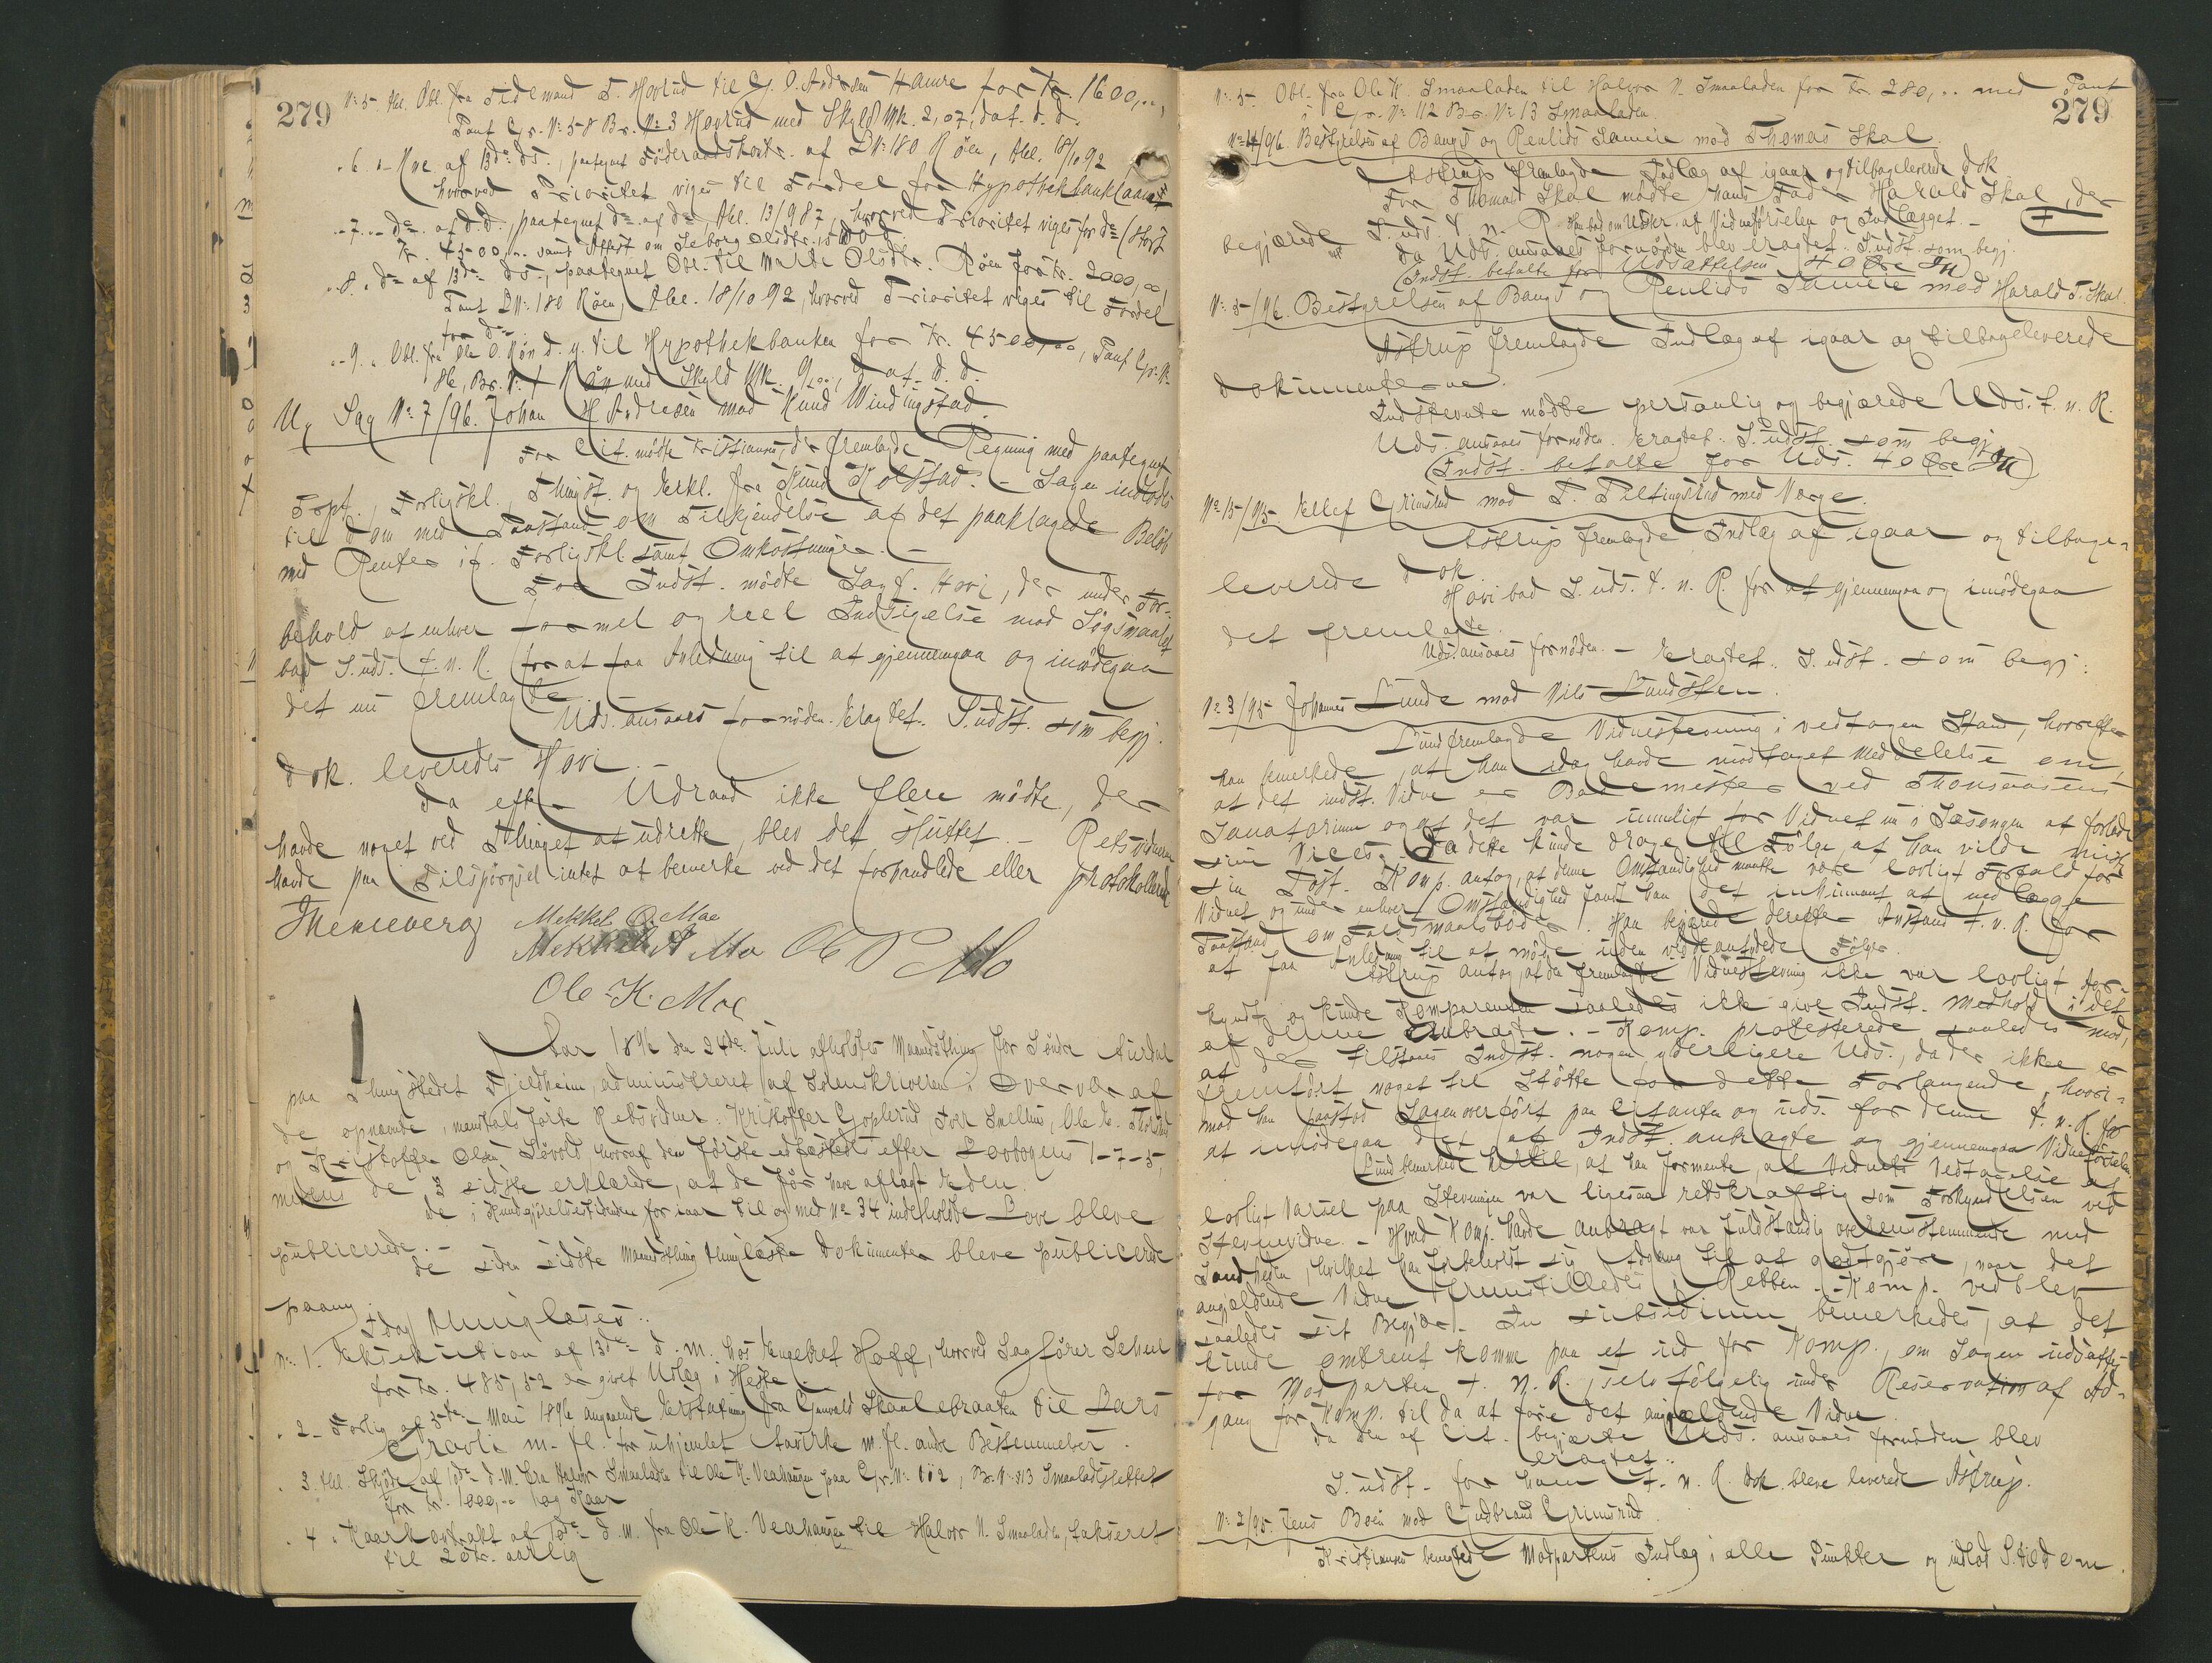 279
No 5. Hel. Obl. fra Tidemand T. Hovrud til G. O. Andersen Hamre for Kr. 1600,..,
Pant G.-No 58 Br. No 3 Hovrud med Skyld Mk. 2,07, dat. d. d.
" 6. Kve. af 13de ds., paategnet Föderaadskontr. af LNo 180 Röen, thl. 18/10 92
hvorved Prioritet viges til Fordel for Hypothekbanklaanet
" 7. - De. af d. d., paategnet De. af De. thl. 13/9 87, hvorved Prioritet viges for De (stort
Kr. 4500,.. samt Attest om Seborg Olsdtrs Död
" 8. De af 13de ds., paategnet Obl. til Marte Olsdtr. Röen for Kr. 2000,00,
Pant LNo 180 Röen, thl. 18/10 92, hvorved Prioritet viges til Fordel
for De.
" 9. Obl. fra Ole O. Röen d. y. til Hypothekbanken for Kr. 4500,00, Pant G.-No
86, Br. No 1 Röen med Skyld Mk. 9,.. , dat. d. d.
Ny Sag No 7/96. Johan H Andresen mod Knud Windingstad.
For Cit. mödte Kristiansen, der fremlagde Regning med paategnet
Fopt., Forligskl., Thingst. og Erkl. fra Knud Kolstad. - Sagen indlodes
til Dom med Paastand om Tilkjendelse af det paaklagede Belöb
med Renter if. Forligskl. samt Omkostninger. -
For Indst. mödte Sagf. Hovi, der under For-
behold af enhver formel og reel Indsigelse mod Sögsmaalet
bad S. uds. t. n. R. for at faa Anledning til at gjennemgaa og imödegaa
det nu fremlagte.
Uds. ansaaes fornöden. Eragtet. S. udst. som begj.
Dok. leveredes Hovi.
Da efter Udraab ikke flere mödte, der
havde noget ved Thinget at udrette, blev det sluttet. - Retsvidnerne
havde paa Tilspörgsel intet at bemerke ved det forhandlede eller protokollerede
Mekkel O. Moe
Mekkel A Moe Ole P Mo
Ole K. Moe
Aar 1896 den 24de Juli afholdtes Maanedsthing for Söndre Aurdal
paa Thingstedet Fjeldheim, administreret af Sorenskriveren i Overvær af
de opnævnte, mandtalsförte Retsvidner: Kristoffer Goplerud, Tor Snellus, Ole E. Thorsrud
og Kristoffer Olsen Sövold, hvoraf den förste edfæstedes efter Lovbogens 1-7-5,
medens de 3 sidste erklærde, at de för have aflagt Eden.
De i Kundgjörelsestidenden for iaar til og med No 34 indeholdte Love bleve
publicerede. -
De siden sidste Maanedsthing thinglæste Dokumenter bleve publicerede
paany.
Idag thinglæses:
No 1. Eksekution af 13de d. m. hos Engebret Hoff, hvorved Sagförer Schul
for Kr. 485,52 er givet Udlæg i Heste.
" 2 - Forlig af 5te Mai 1896 angaaende Erstatning fra Gunvald Skaalebraaten til Lars
Gravli m. fl. for uhjemlet Aavirke m. fl. andre Bestemmelser.
" 3. Hel. Skjöde af 10de d. M. fra Halvor Smaaladen til Ole K. Veahaugen paa G. No 112, Br. No 13 Smaaladsjettet
for Kr. 1000,.. og Kaar
" 4. Kaarkontrakt af 10de d. m. fra Ole K. Veahaugen til Halvor N. Smaaladen, takseret
til 20 Kr. aarlig
279
No 5. Obl. fra Ole K. Smaaladen til Halvor N. Smaaladen for Kr. 280,.. med Pant
i G. No 112 Br. No 13 Smaaladen.
No 4/96. Bestyrelsen af Bangs og Renlids Sameie mod Thomas Skal.
Astrup fremlagde Indlæg af igaar og tilbageleverede Dok.
For Thomas Skal mödte hans Fader Harald Skal, der
begjærede S. uds. t. n. R. Han bad om Udskr. af Vidneförselen og Indlægget. -
Da Uds. ansaaes fornöden blev eragtet: S. udst. som begj.
(Indst. betalte for Udsættelsen 40 Øre)
No 5/96. Bestyrelsen af Bangs og Renlids Sameie mod Harald T. Skal.
Astrup fremlagde Indlæg af igaar og tilbageleverede
Dokumenterne.
Indstevnte mödte personlig og begjærede Uds. t. n. R.
Uds. ansaaes fornöden. Eragtet: S. udst. som begj.
(Indst. betalte for Uds. 40 Øre)
No 15/95. Ellef Grimsrud mod T. Piltingsrud med Værge.
Astrup fremlagde Indlæg af igaar og tilbage-
leverede Dok.
Hovi bad S. uds. t. n. R. for at gjennemgaa og imödegaa
det fremlagte.
Uds. ansaaes fornöden. - Eragtet: S. udst. som begj:
No 3/95 Johannes Lunde mod Nils Lundsten.
Lund fremlagde Vidnestevning i vedtagen Stand, hvorefter
han bemerkede, at han idag havde modtaget Meddelelse om,
at det indst. Vidne er Bademester ved Thonsaasens
Sanatorium og at det var umuligt for Vidnet nu i Sæsongen at forlade
sin Stilling. Da dette kunde drage til Fölge, at han vilde miste
sin Post. Komp. antog, at denne Omstændighed maatte være lovligt Forfald for
Vidnet og under enhver Omstændighed fandt han det inhumant at nedlægge
Paastand om Faldsmaalsböder. Han begjærede derefter Anstand t. n. R. for
at faa Anledning til at möde uden videre antydede Fölger.
Astrup antog, at den fremlagte Vidnestevning ikke var lovligt for-
kyndt og kunde Komparenten saaledes ikke give Indst. Medhold i det
af denne Anbragte. - Komp. protesterede saaledes mod,
at der tilstaaes Indst. nogen yderligere Uds., da der ikke er
fremfört noget til Stötte for dette Forlangende, hvori-
mod han paastod Sagen overfört paa Citanten og uds. for denne t. n. R. for
at imödegaa det af Indst. anbragte og gjennemgaa Vidneförselen
Lund bemerkede hertil, at han formente, at Vidnets Vedtagelse af
lovligt Varsel paa Stevningen var ligesaa retskraftig som Forkyndelsen ved
Stevnevidne. - Hvad Komp. havde anbragt var fuldstændig overensstemmende med
Sandheden, hvilket han forbeholdt sig Adgang til at godtgjöre, naar det
angjældende Vidne fremstilledes i Retten. - Komp. vedblev
saaledes sit Begjær. In subsidium bemerkedes, at det
kunde omtrent komme paa et ud for Komp., om Sagen udsattes
for Modparten t. n. R., selvfölgelig under Reservation af Ad-
gang for Komp. til da at före det angjældende Vidne.
Da den af Cit. begjærte Uds. ansaaes fornöden blev
eragtet:
S. udst. for ham t. n. R. Dok. bleve leverede Astrup.
No 2/95. Jens Boen mod Gudbrand Grimsrud.
Kristiansen benegtede Modpartens Indlæg i alle Punkter og indlod S. til Dom.